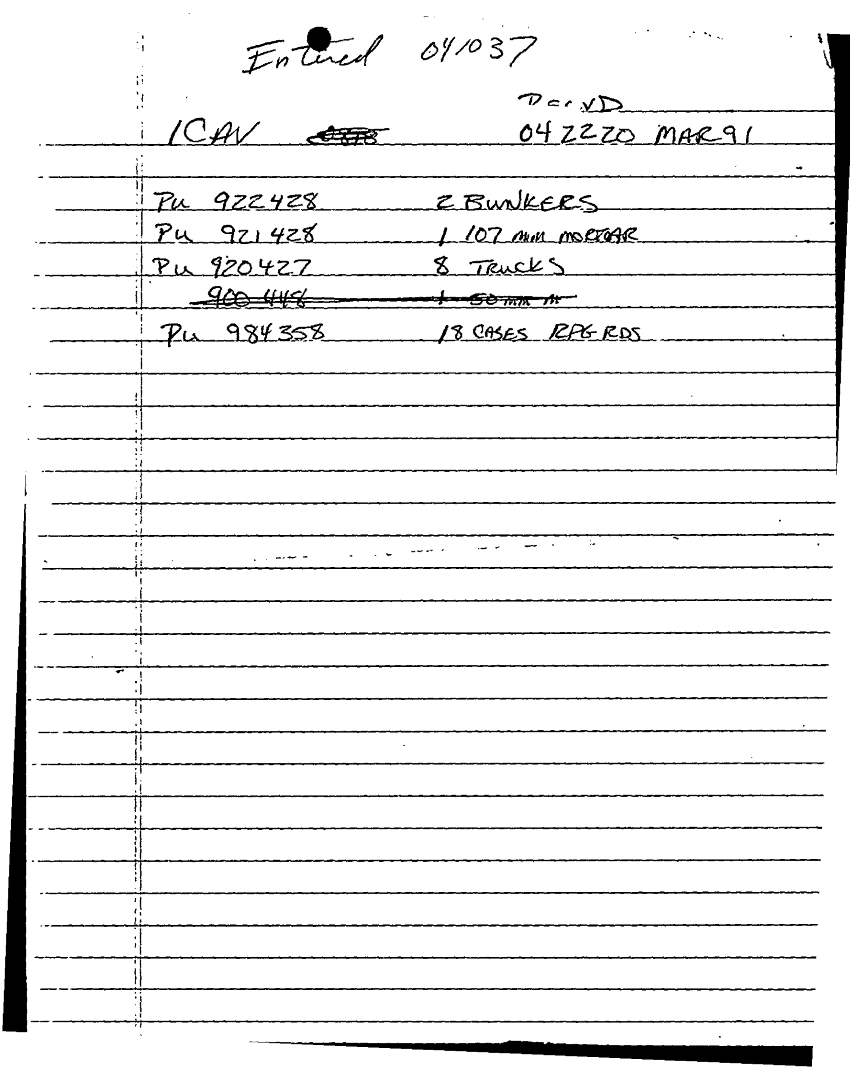 Entered 041037
1CAV
042220 MAR 91
Pu 922428 2 BUNKERS
Pu 921428 1 107 mm MORTAR
Pu 920427 8 TRUCKS
900 448 1 50 mm
Pu 984358 18 CASES RPG RDS